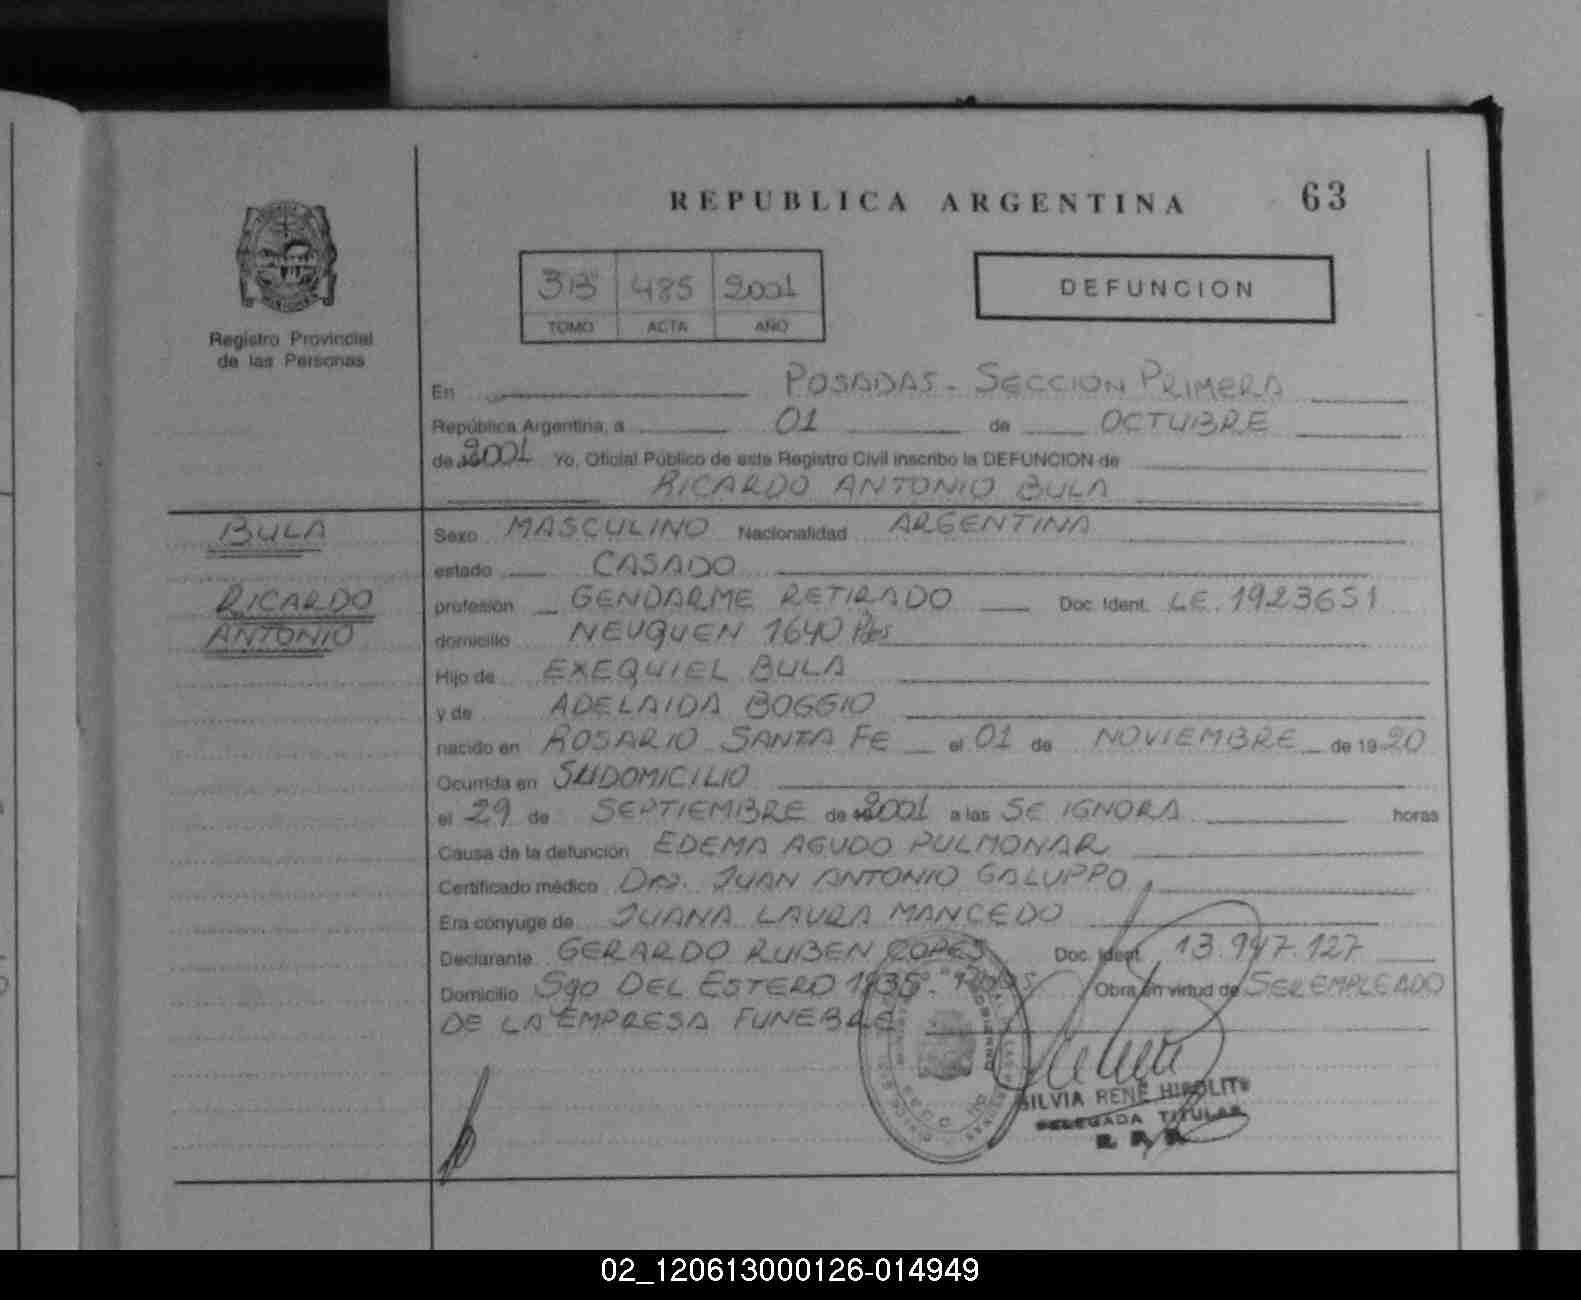 REPUBLICA ARGENTINA 63
Registro Provincial
de las Personas
3B 485 2001
TOMO ACTA AÑO
DEFUNCION
En POSADAS - SECCION PRIMERA
República Argentina, a 01 de OCTUBRE
de 2001 Yo, Oficial Público de este Registro Civil inscribo la DEFUNCION de
RICARDO ANTONIO BULA
BULA
RICARDO
ANTONIO
Sexo MASCULINO Nacionalidad ARGENTINA
estado CASADO
profesión GENDARME RETIRADO Doc. Ident. LE. 1923651
domicilio NEUQUEN 1640 Pdas
Hijo de EXEQUIEL BULA
y de ADELAIDA BOGGIO
nacido en ROSARIO SANTA FE el 01 de NOVIEMBRE de 1920
Ocurrida en SU DOMICILIO
el 29 de SEPTIEMBRE de 2001 a las SE IGNORA horas
Causa de la defunción EDEMA AGUDO PULMONAR
Certificado médico JUAN ANTONIO GALUPPO
Era cónyuge de JUANA LAURA MANCEDO
Declarante GERARDO RUBEN COPES Doc. Ident. 13.947.127
Domicilio Sgo DEL ESTERO 1835 Obra en virtud de SER EMPLEADO
DE LA EMPRESA FUNEBRE
SILVIA RENÉ HIPOLITO
DELEGADA TITULAR
02_120613000126-014949